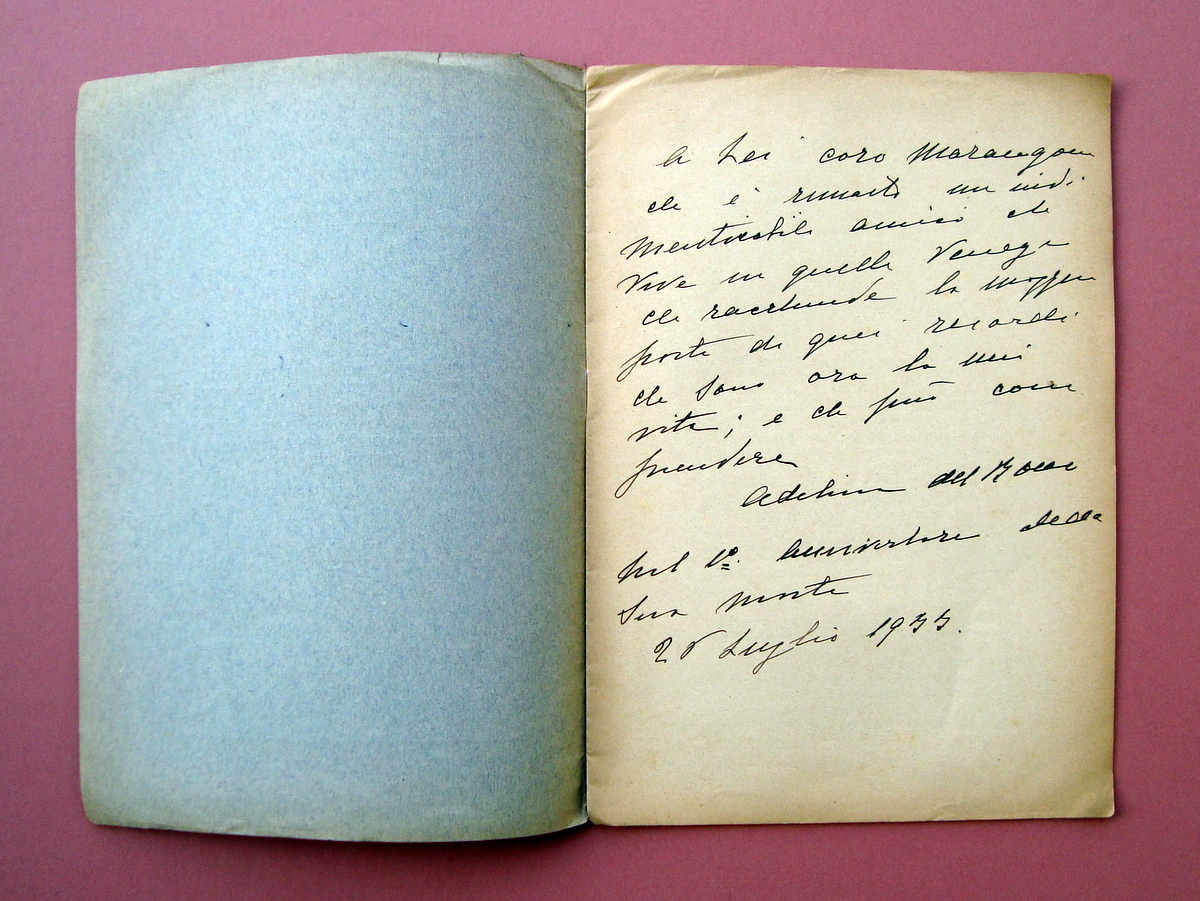 A Lei caro Marangoni
che è rimasto un indi
menticabile amico che
vive in quella Venezia
che racchiude la maggior
parte di quei ricordi
che sono ora la mia
vita; e che può com
prendere
Adelina del Bocca
Nel 1º Anniversario della
Sua morte
Luglio 1933.